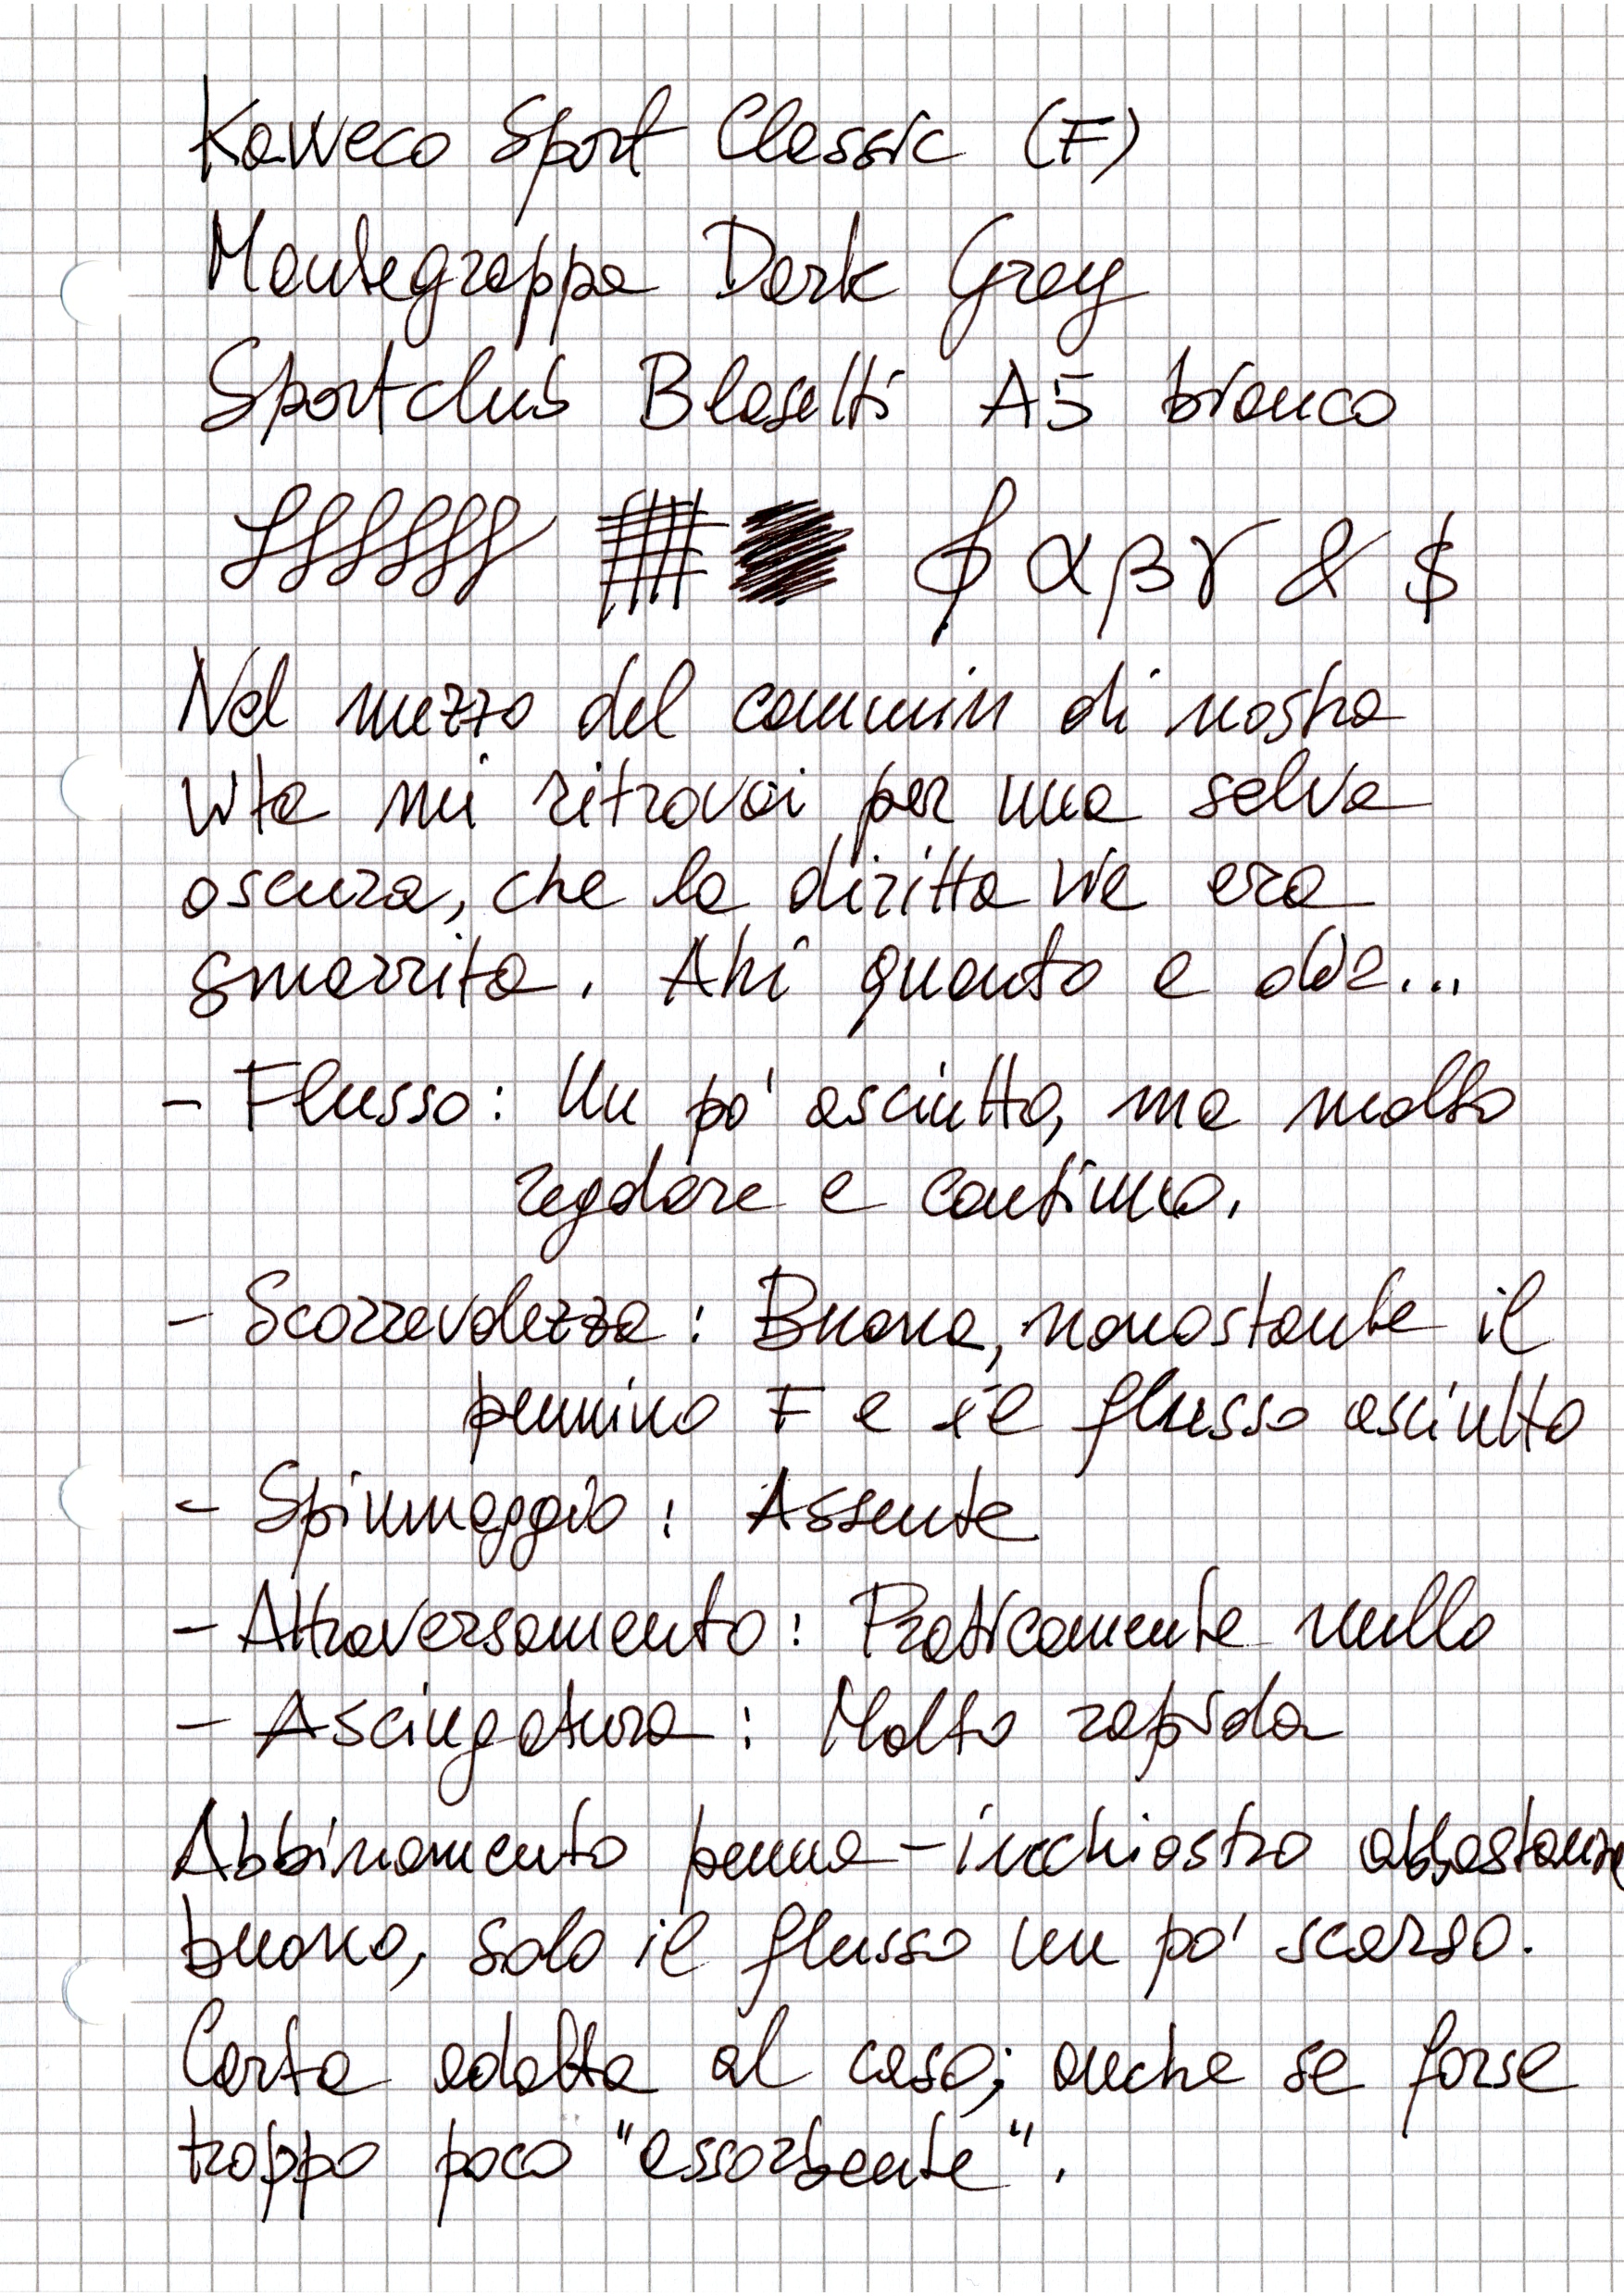 Kaweco Sport Classic (F)
Montegrappa Dark Gray
Sportclub Blasetti A5 bianco
∮ α β γ & $
Nel mezzo del cammin di nostra
vita mi ritrovai per una selva
oscura, che la diritta via era
smarrita. Ahi quanto a dir...
- Flusso: Un po' asciutto, ma molto
regolare e continuo.
- Scorrevolezza: Buona, nonostante il
pennino F e il flusso asciutto
- Spiumaggio: Assente
- Attraversamento: Praticamente nullo
- Asciugatura: Molto rapida
Abbinamento penna-inchiostro abbastanza
buono, solo il flusso un po' scarso.
Carta adatta al caso; anche se forse
troppo poco "assorbente".